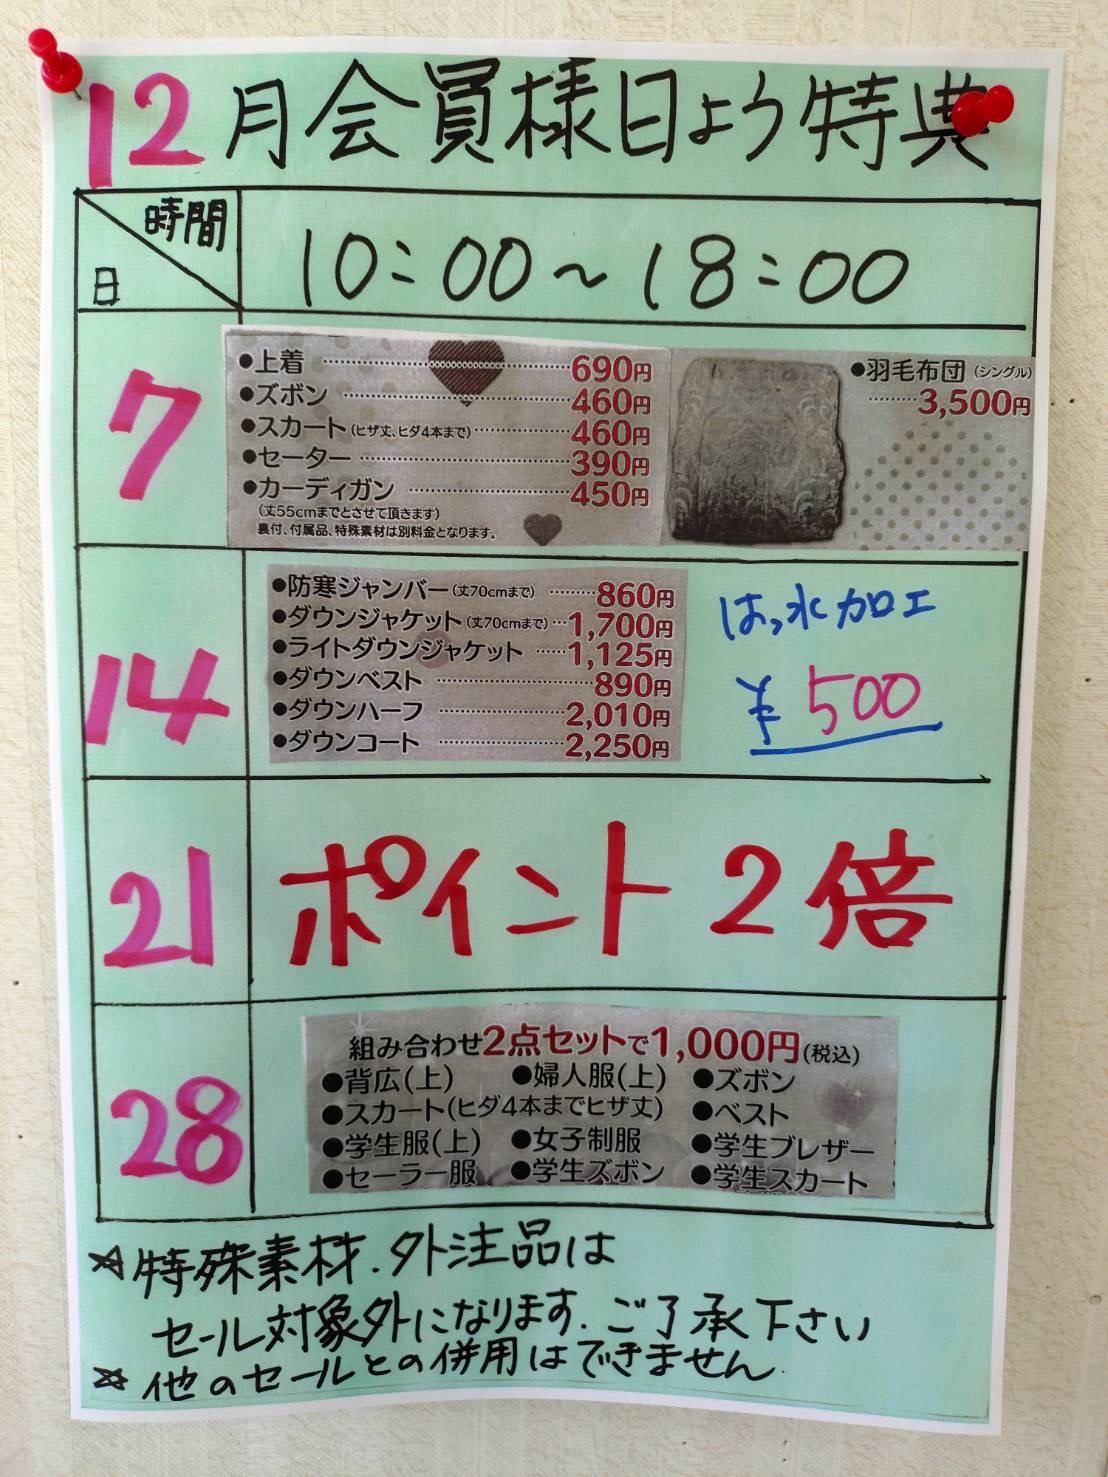 12月会員様日よう特典
時間
日
10:00～18:00
7
●上着 …… 690円
●ズボン …… 460円
●スカート(ヒザ丈、ヒダ4本まで) …… 460円
●セーター …… 390円
●カーディガン …… 450円
(丈55cmまでとさせて頂きます)
裏付、付属品、特殊素材は別料金となります。
●羽毛布団(シングル)
…… 3,500円
14
●防寒ジャンバー(丈70cmまで) …… 860円
●ダウンジャケット(丈70cmまで) … 1,700円
●ライトダウンジャケット …… 1,125円
●ダウンベスト …… 890円
●ダウンハーフ …… 2,010円
●ダウンコート …… 2,250円
はっ水加工
¥500
21
ポイント2倍
28
組み合わせ2点セットで1,000円(税込)
●背広(上) ●婦人服(上) ●ズボン
●スカート(ヒダ4本までヒザ丈) ●ベスト
●学生服(上) ●女子制服 ●学生ブレザー
●セーラー服 ●学生ズボン ●学生スカート
☆特殊素材.外注品は
セール対象外になります.ご了承下さい
☆他のセールとの併用はできません.